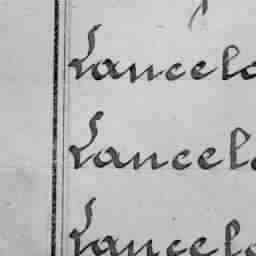 Lancelo
Lancelo
Lancelo